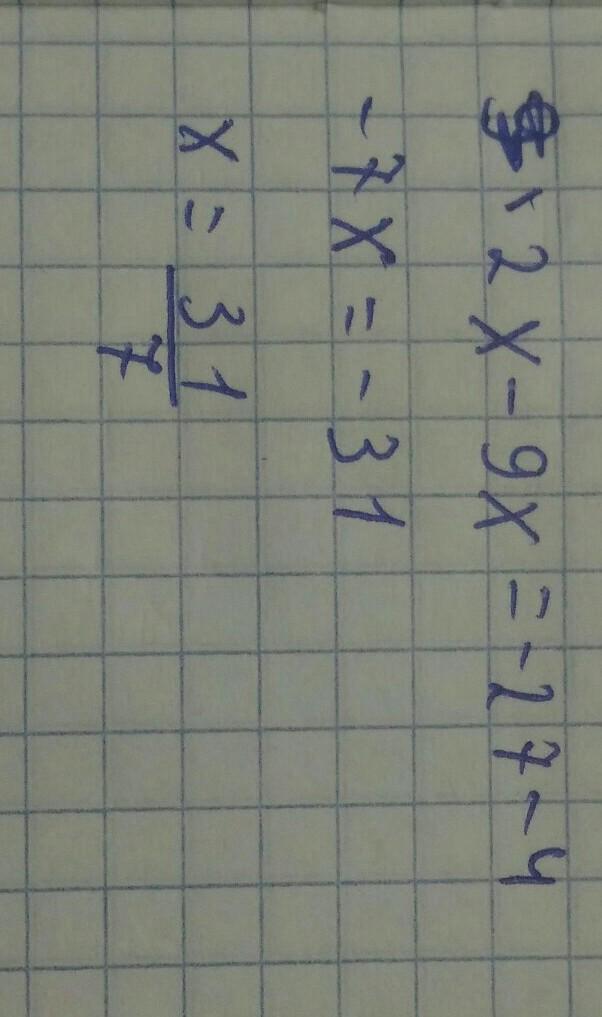 2x - 9x = -27 - 4
-7x = -31
x = 31/7